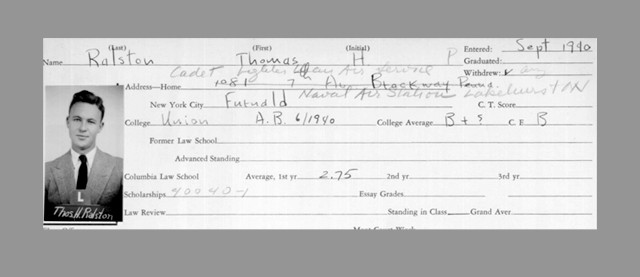 (Last) (First) (Initial) Entered: Sept 1940
Name Ralston Thomas H P Graduated:
Cadet Lighter than Air Service Withdrew: ✓
Address—Home 1081 7th Ave Brockway Penna.
Naval Air Station Lakehurst NJ
New York City Furnald C. T. Score
College Union A.B. 6/1940 College Average B+ C E B
Former Law School
Advanced Standing
Columbia Law School Average, 1st yr. 2.75 2nd yr. 3rd yr.
Scholarships 40040-1 Essay Grades
Law Review Standing in Class Grand Aver
L
Thos. H. Ralston